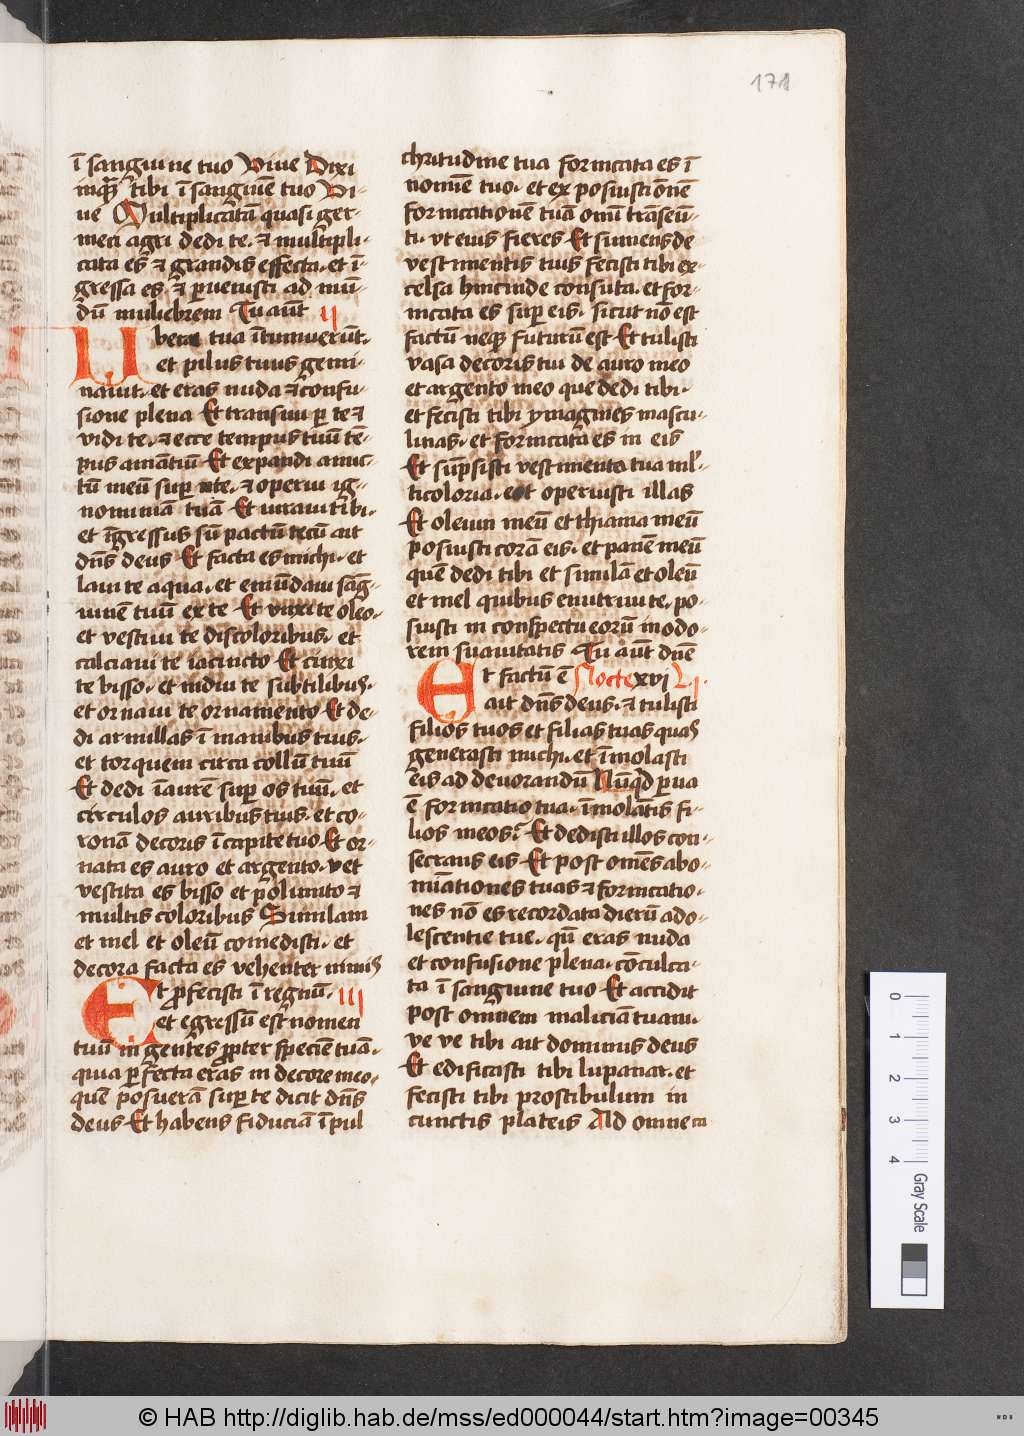 171
ī sanguine tuo Viue Dixi
inqꝫ tibi ī sanguīe tuo Vi-
ue Multiplicatā quasi ger-
men agri dedi te. et multipli-
cata es et grandis effecta. et ī-
gressa es et peruenisti ad mū-
dū muliebrem Tu aūt ij
Ubera tua ītumuerūt.
et pilus tuus gemi-
nauit. et eras nuda et cōfu-
sione plena Et transiui per te et
vidi te. et ecce tempus tuū tē-
pus amātiū Et expandi amic-
tū meū super te. et operui ig-
nominiā tuā Et iuraui tibi.
et īgressus sū pactū tecū ait
dn̄s deus Et facta es michi. et
laui te aqua. et emūdaui sāg-
uinē tuū ex te Et vnxi te oleo.
et vestiui te discoloribus. et
calciaui te iacincto Et cinxi
te bisso. et indui te subtilibus.
et ornaui te ornamento Et de-
di armillas ī manibus tuis.
et torquem circa collū tuū
Et dedi īaurē super os tuū. et
circulos auribus tuis. et co-
ronā decoris ī capite tuo Et or-
nata es auro et argento. et
vestita es bisso et polimito et
multis coloribus Similam
et mel et oleū comedisti. et
decora facta es vehenter nimis
Et profecisti ī regnū. iij
et egressū est nomen
tuū in gentes propter speciē tuā.
quia perfecta eras in decore meo.
quē posuerā super te dicit dn̄s
deus Et habens fiduciā ī pul
chritudine tua fornicata es ī
nomīe tuo. et exposuisti ōnē
fornicationē tuā omī transeū-
ti. vt eius fieres Et sumens de
vestimentis tuis fecisti tibi ex-
celsa hincinde consuta. et for-
nicata es super eis. sicut nō est
factū neqꝫ futurū est Et tulisti
vasa decoris tui de auro meo
et argento meo que dedi tibi.
et fecisti tibi ymagines mascu-
linas. et fornicata es in eis
Et sūpsisti vestimenta tua ml̄-
ticoloria. et operuisti illas
Et oleum meū et thiama meū
posuisti corā eis. et panē meū
quē dedi tibi et similā et oleū
et mel quibus enutriui te. po-
suisti in conspectu eorū in odo-
rem suauitatis Tu aūt dn̄e
Et factū ē Nocte xvi L j.
ait dn̄s deus. et tulisti
filios tuos et filias tuas quas
generasti michi. et īmolasti
eis ad deuorandū Nūqd̄ parua
ē fornicatio tua. īmolātis fi-
lios meos. Et dedisti illos con-
secrans eis Et post omēs abo-
mīationes tuas et fornicatio-
nes nō es recordata dierū ado-
lescentie tue. qn̄ eras nuda
et confusione plena. cōculca-
ta ī sanguine tuo Et accidit
post omnem maliciā tuam.
ve ve tibi ait dominus deus
Et edificasti tibi lupanar. et
fecisti tibi prostibulum in
cunctis plateis Ad omne ca
0 1 2 3 4 Gray Scale
© HAB http://diglib.hab.de/mss/ed000044/start.htm?image=00345